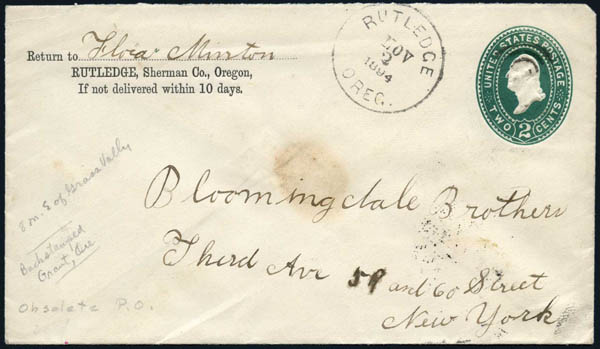 Return to Flora Minton
RUTLEDGE, Sherman Co., Oregon,
If not delivered within 10 days.
RUTLEDGE
NOV
2
1894
OREG.
UNITED STATES POSTAGE
TWO 2 CENTS
8 m. S of Grass Valley
Backstamped
Grant, Ore
Obsolete P.O.
Bloomingdale Brothers
Third Ave 59 and 60 Street
New York